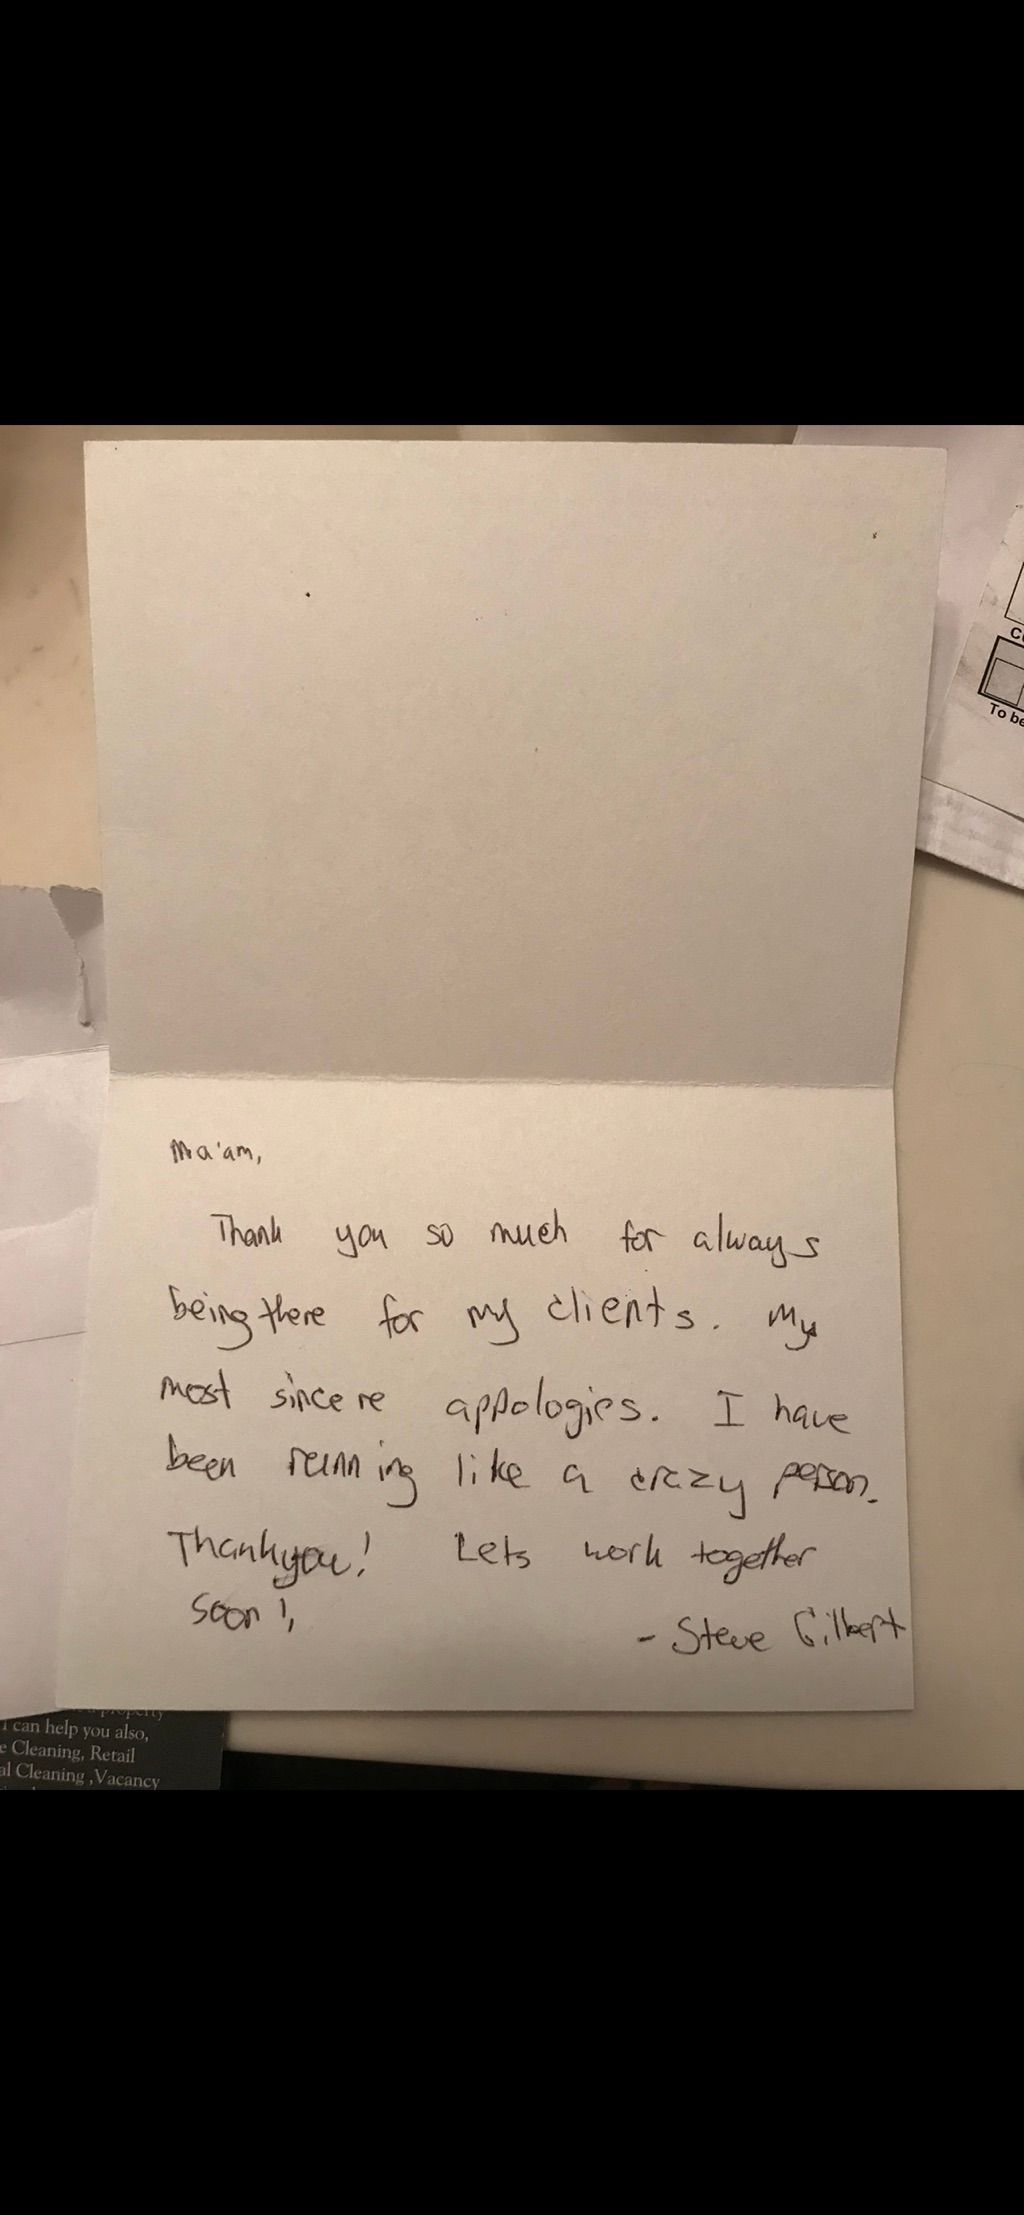 Ma'am,
Thank you so much for always
being there for my clients. My
most sincere appologies. I have
been running like a crazy person.
Thankyou! Lets work together
soon!,
- Steve Gilbert
To be
property
I can help you also,
Cleaning, Retail
al Cleaning ,Vacancy